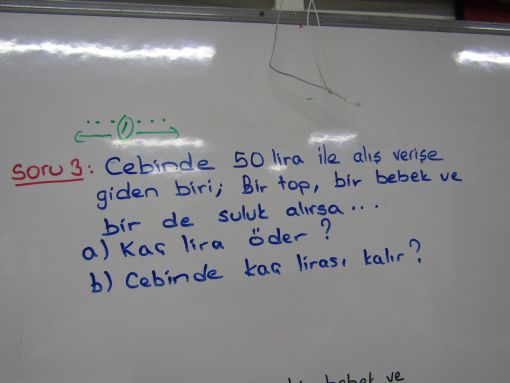 ... 1 ...
Soru 3: Cebinde 50 lira ile alış verişe
giden biri; Bir top, bir bebek ve
bir de suluk alırsa...
a) Kaç lira öder?
b) Cebinde kaç lirası kalır?
bebek ve